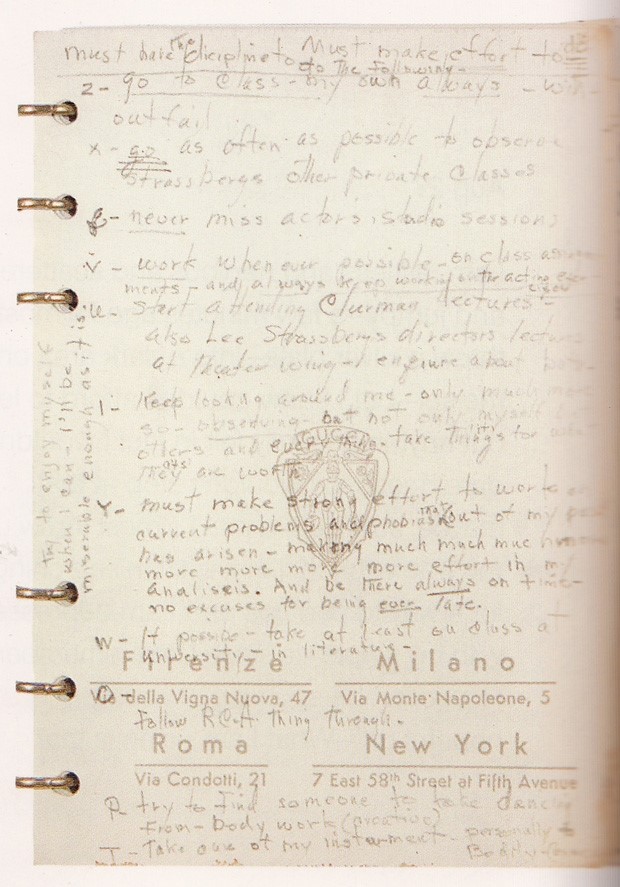 must have the dicipline to Must make effort to
do The following -
z - go to class - my own always - with
out fail
x - go as often as possible to observe
Strassberg's other private classes
g - never miss actor's studio sessions
v - work whenever possible - on class assign
ments - and always keep working on the acting exer
cises
u - start attending Clurman lectures -
also Lee Strassberg's directors lectures
at theater wing - enquire about both
l - Keep looking around me - only much more
so - observing - but not only myself but
others and everything - take things for what
they are worth
GUCCI
y - must make strong effort to work on
current problems and phobias that out of my past
has arisen - making much much much more
more more more more effort in my
analiseis. And be there always on time -
no excuses for being ever late.
w - if possible - take at least one class at
university - in literature -
Firenze Milano
Via della Vigna Nuova, 47 Via Monte Napoleone, 5
o - follow RCA thing through.
Roma New York
Via Condotti, 21 7 East 58th Street at Fifth Avenue
p - try to find someone to take dancing
from - body work (creative)
t - Take care of my instrument - personally &
bodily
try to enjoy myself
when I can - I'll be
miserable enough as it is.